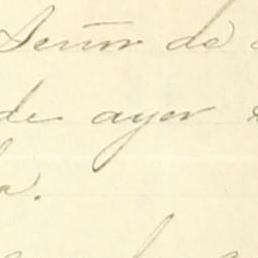 Señor de
de ayer